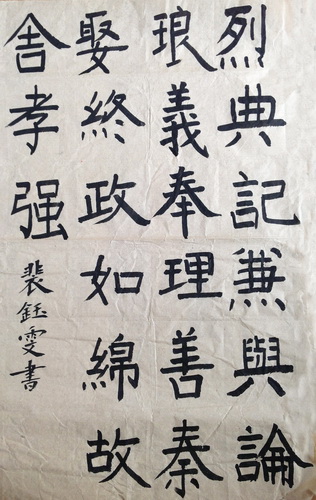 烈典記兼與論
琅義奉理善秦
娶終政如綿故
舎孝强
裴鈺雯書